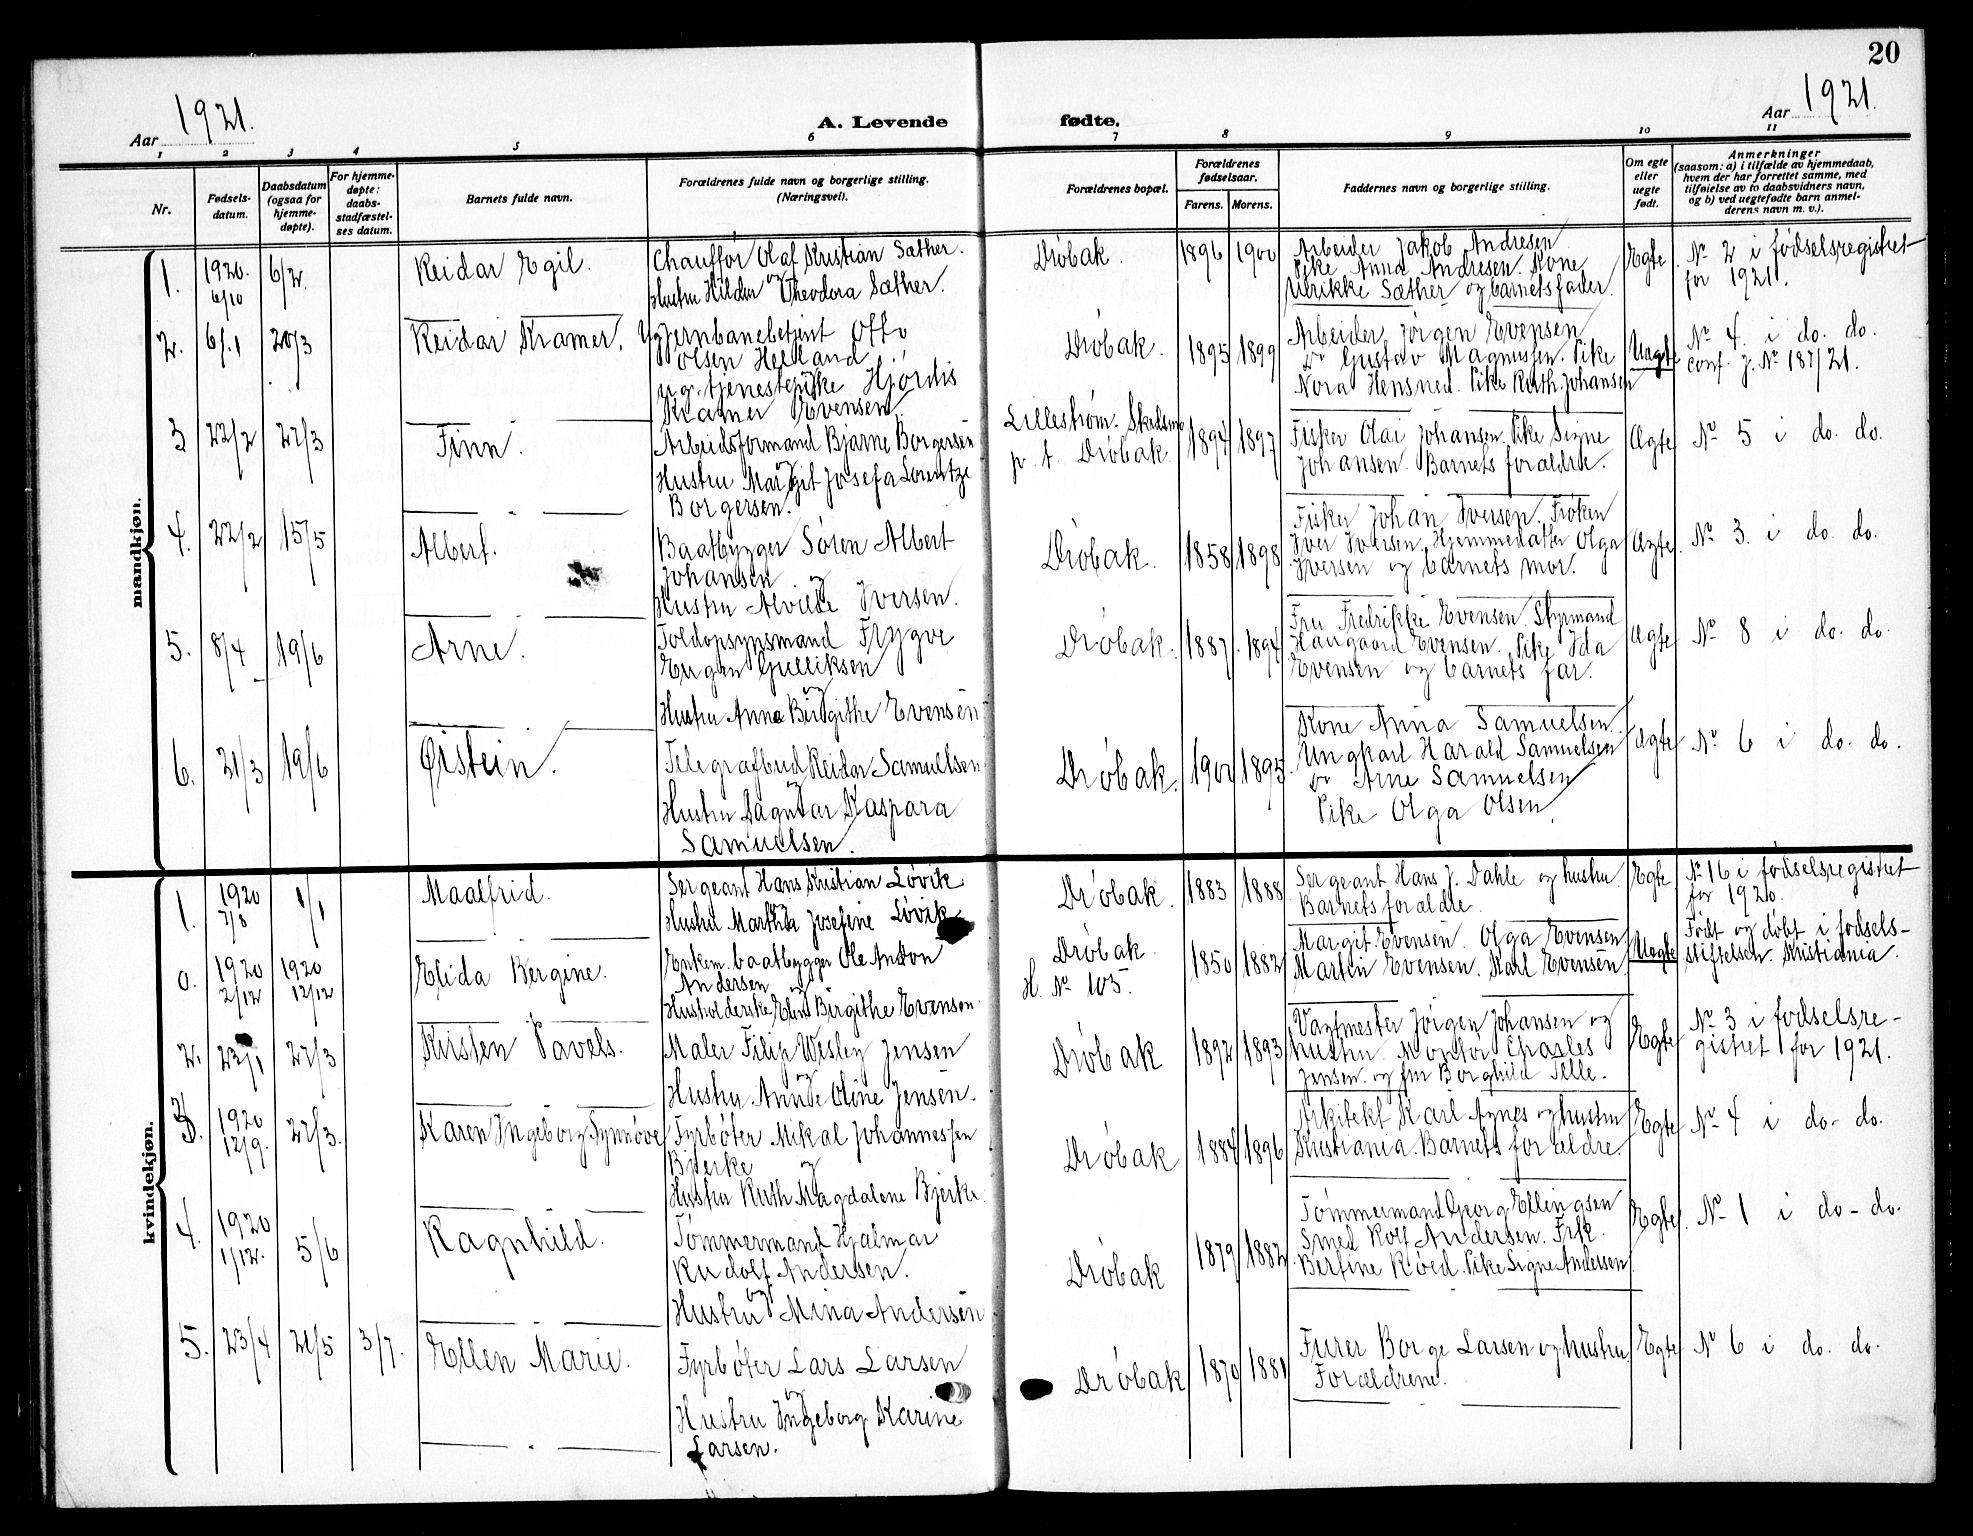 20
Aar 1921.
A. Levende fødte.
Aar 1921.
1 2 3 4 5 6 7 8 9 10 11
Nr.
Fødsels-
datum.
Daabsdatum
(ogsaa for
hjemme-
døpte).
For hjemme-
døpte:
daabs-
stadfæstel-
ses datum.
Barnets fulde navn.
Forældrenes fulde navn og borgerlige stilling.
(Næringsvei).
Forældrenes bopæl.
Forældrenes
fødselsaar.
Farens. Morens.
Faddernes navn og borgerlige stilling.
Om egte
eller
uegte
født.
Anmerkninger
(saasom: a) i tilfælde av hjemmedaab,
hvem der har forrettet samme, med
tilføielse av to daabsvidners navn,
og b) ved uegtefødte barn anmel-
derens navn m. v.).
mandkjøn.
1. 1920. 6/10 6/2. Reidar Egil.
Chauffør Olaf Kristian Sæther.
og
Hustru Hilda Theodora Sæther.
Drøbak. 1896 1900
Arbeider Jakob Andresen
Pike Anna Andresen. Kone
Ulrikke Sæther og barnets fader.
Egte.
No 2 i fødselsregistret
for 1921.
2. 6/1 20/3 Reidar Kramer.
Ug. Jernbanebetjent Otto
Olsen Helland
ug. tjenestepike Hjørdis
Kramer Evensen
Drøbak. 1895 1899
Arbeider Jørgen Evensen
do Gustav Magnussen. Pike
Nora Hensned. Pike Ruth Johansen
Uegte
No 4. i do. do.
conf. j. No 187/21.
3 22/2 27/3 Finn.
Arbeidsformand Bjarne Borgersen
og
Hustru Margit Josefa Lorentze
Borgersen.
Lillestrøm. Skedsmo
p. t. Drøbak. 1894 1897
Fisker Olai Johansen. Pike Signe
Johansen. Barnets forældre.
Ægte
No 5 i do. do.
4. 22/2 15/5 Albert.
Baatbygger Søren Albert
Johansen og
Hustru Alvilde Iversen.
Drøbak. 1858 1898
Fisker Johan Iversen. Frøken
Iver Iversen, Hjemmedatter Olga
Iversen og barnets mor.
Ægte.
No 3. i do. do.
5. 8/4 19/6 Arne.
Toldopsynsmand Trygve
Eugen Gulliksen
og
Hustru Anna Birgithe Evensen
Drøbak. 1887. 1894
Fru Fredrikke Evensen. Styrmand
Haagaard Evensen. Pike Ida
Evensen og barnets far.
Ægte
No 8 i do. do.
6. 21/3 19/6 Øistein.
Telegrafbud Reidar Samuelsen
og
Hustru Dagmar Kaspara
Samuelsen.
Drøbak. 1900 1895
Kone Anna Samuelsen.
Ungkarl Harald Samuelsen
do Arne Samuelsen
Pike Olga Olsen.
Ægte
No 6 i do. do.
kvindekjøn.
1. 1920 7/8 1/1 Maalfrid.
Sergeant Hans Kristian Løvik
og
Hustru Marthea Josefine Løvik
Drøbak. 1883 1888
Sergeant Hans J. Dahle og hustru.
Barnets forældre.
Egte
No 16 i fødselsregistret
for 1920.
0. 1920 2/12 1920 12/12 Elida Bergine.
Enkem. baatbygger Ole Anton
Andersen
og
Husholderske Elen Birgithe Evensen
Drøbak.
H. No 105. 1850 1882
Margit Evensen. Olga Evensen
Martin Evensen. Karl Evensen
Uegte
Født og døbt i fødsels-
stiftelsen. Kristiania.
2. 23/1 27/3 Kirsten Pavels.
Maler Filip Wesley Jensen
og
Hustru Annie Oline Jensen.
Drøbak 1892 1893
Vagtmester Jørgen Johansen og
hustru. Montør Charles
Jensen og fru Borghild Telle.
Egte
No 3 i fødselsre-
gistret for 1921.
3. 1920 12/9. 27/3. Karen Ingeborg Synnøve
Fyrbøter Mikal Johannessen
Bjerke og
Hustru Ruth Magdalene Bjerke.
Drøbak 1884 1896
Arkitekt Karl Agnes og hustru
Kristiania. Barnets forældre.
Egte
No 4 i do. do.
4. 1920 1/12. 5/6 Ragnhild.
Tømmermand Hjalmar
Rudolf Andersen.
og
Hustru Mina Andersen
Drøbak 1879 1882
Tømmermand Georg Ellingsen
Smed Rolf Andersen. Frk.
Bertine Røed. Pike Signe Andersen
Egte.
No 1 i do. do.
5. 23/4 21/5 3/7. Ellen Marie.
Fyrbøter Lars Larsen
og
Hustru Ingeborg Karine
Larsen.
Drøbak 1870 1881
Furer Borge Larsen og hustru.
Forældrene.
Egte
No 6 i do. do.